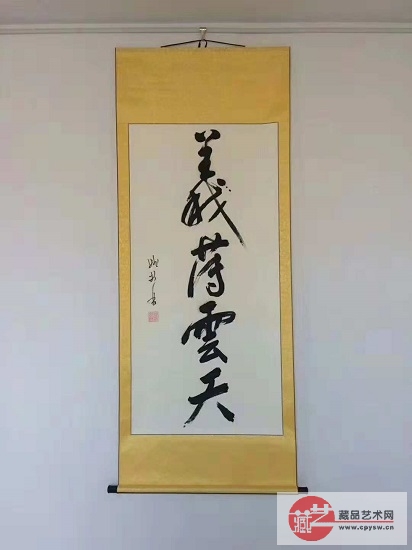 義薄雲天
藏艺
藏品艺术网
www.cpysw.cn